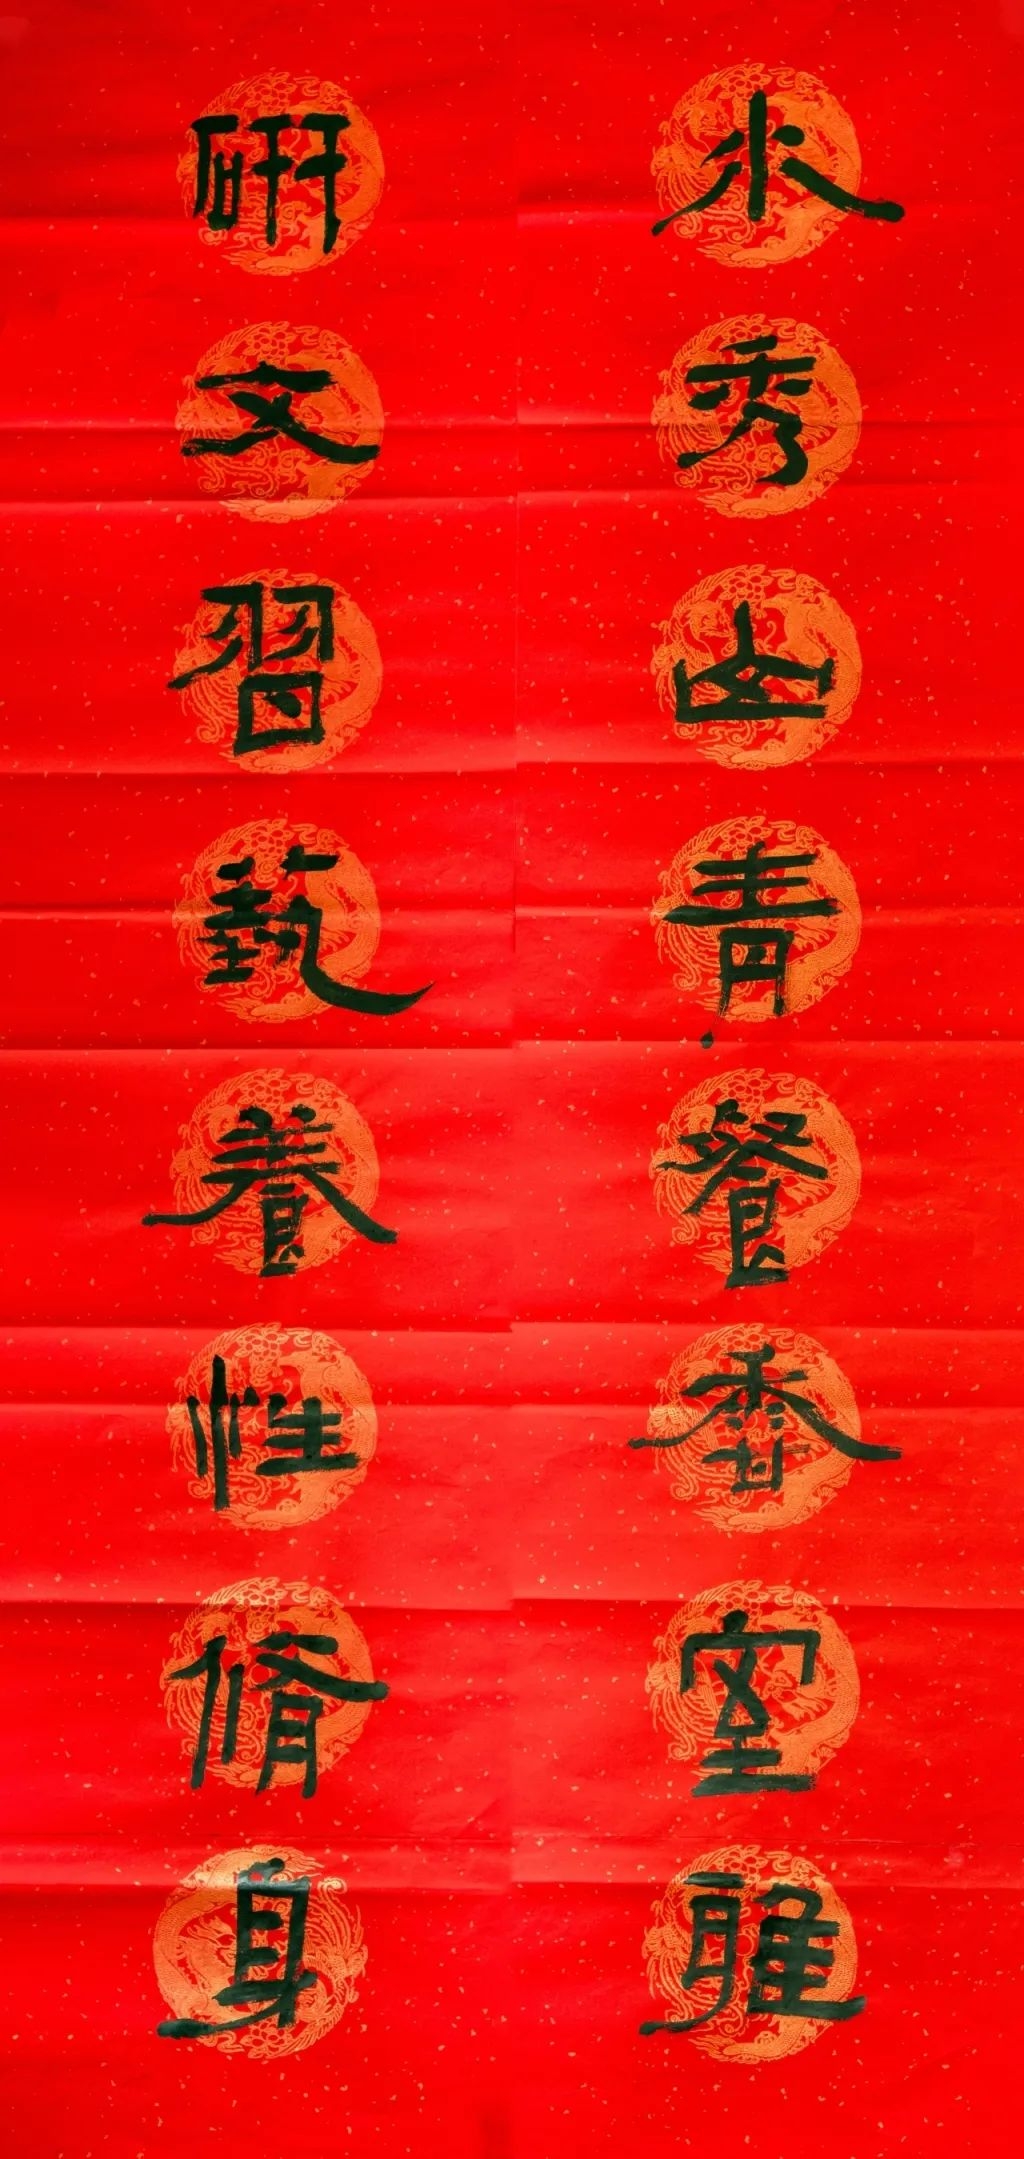 水秀山青餐香室雅
研文習藝養性脩身